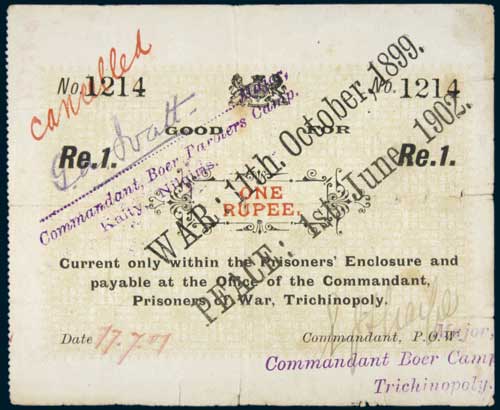 cancelled
No. 1214
No. 1214
GOOD FOR
Re.1.
Re.1.
Major,
Commandant, Boer Farmers Camp.
Kaity, Nilgiris.
WAR: 11th. October, 1899.
PEACE: 1st. June, 1902.
ONE
RUPEE.
Current only within the Prisoners' Enclosure and
payable at the Office of the Commandant,
Prisoners of War, Trichinopoly.
Date
Commandant, P.O.W.
Major,
Commandant Boer Camp
Trichinopoly.